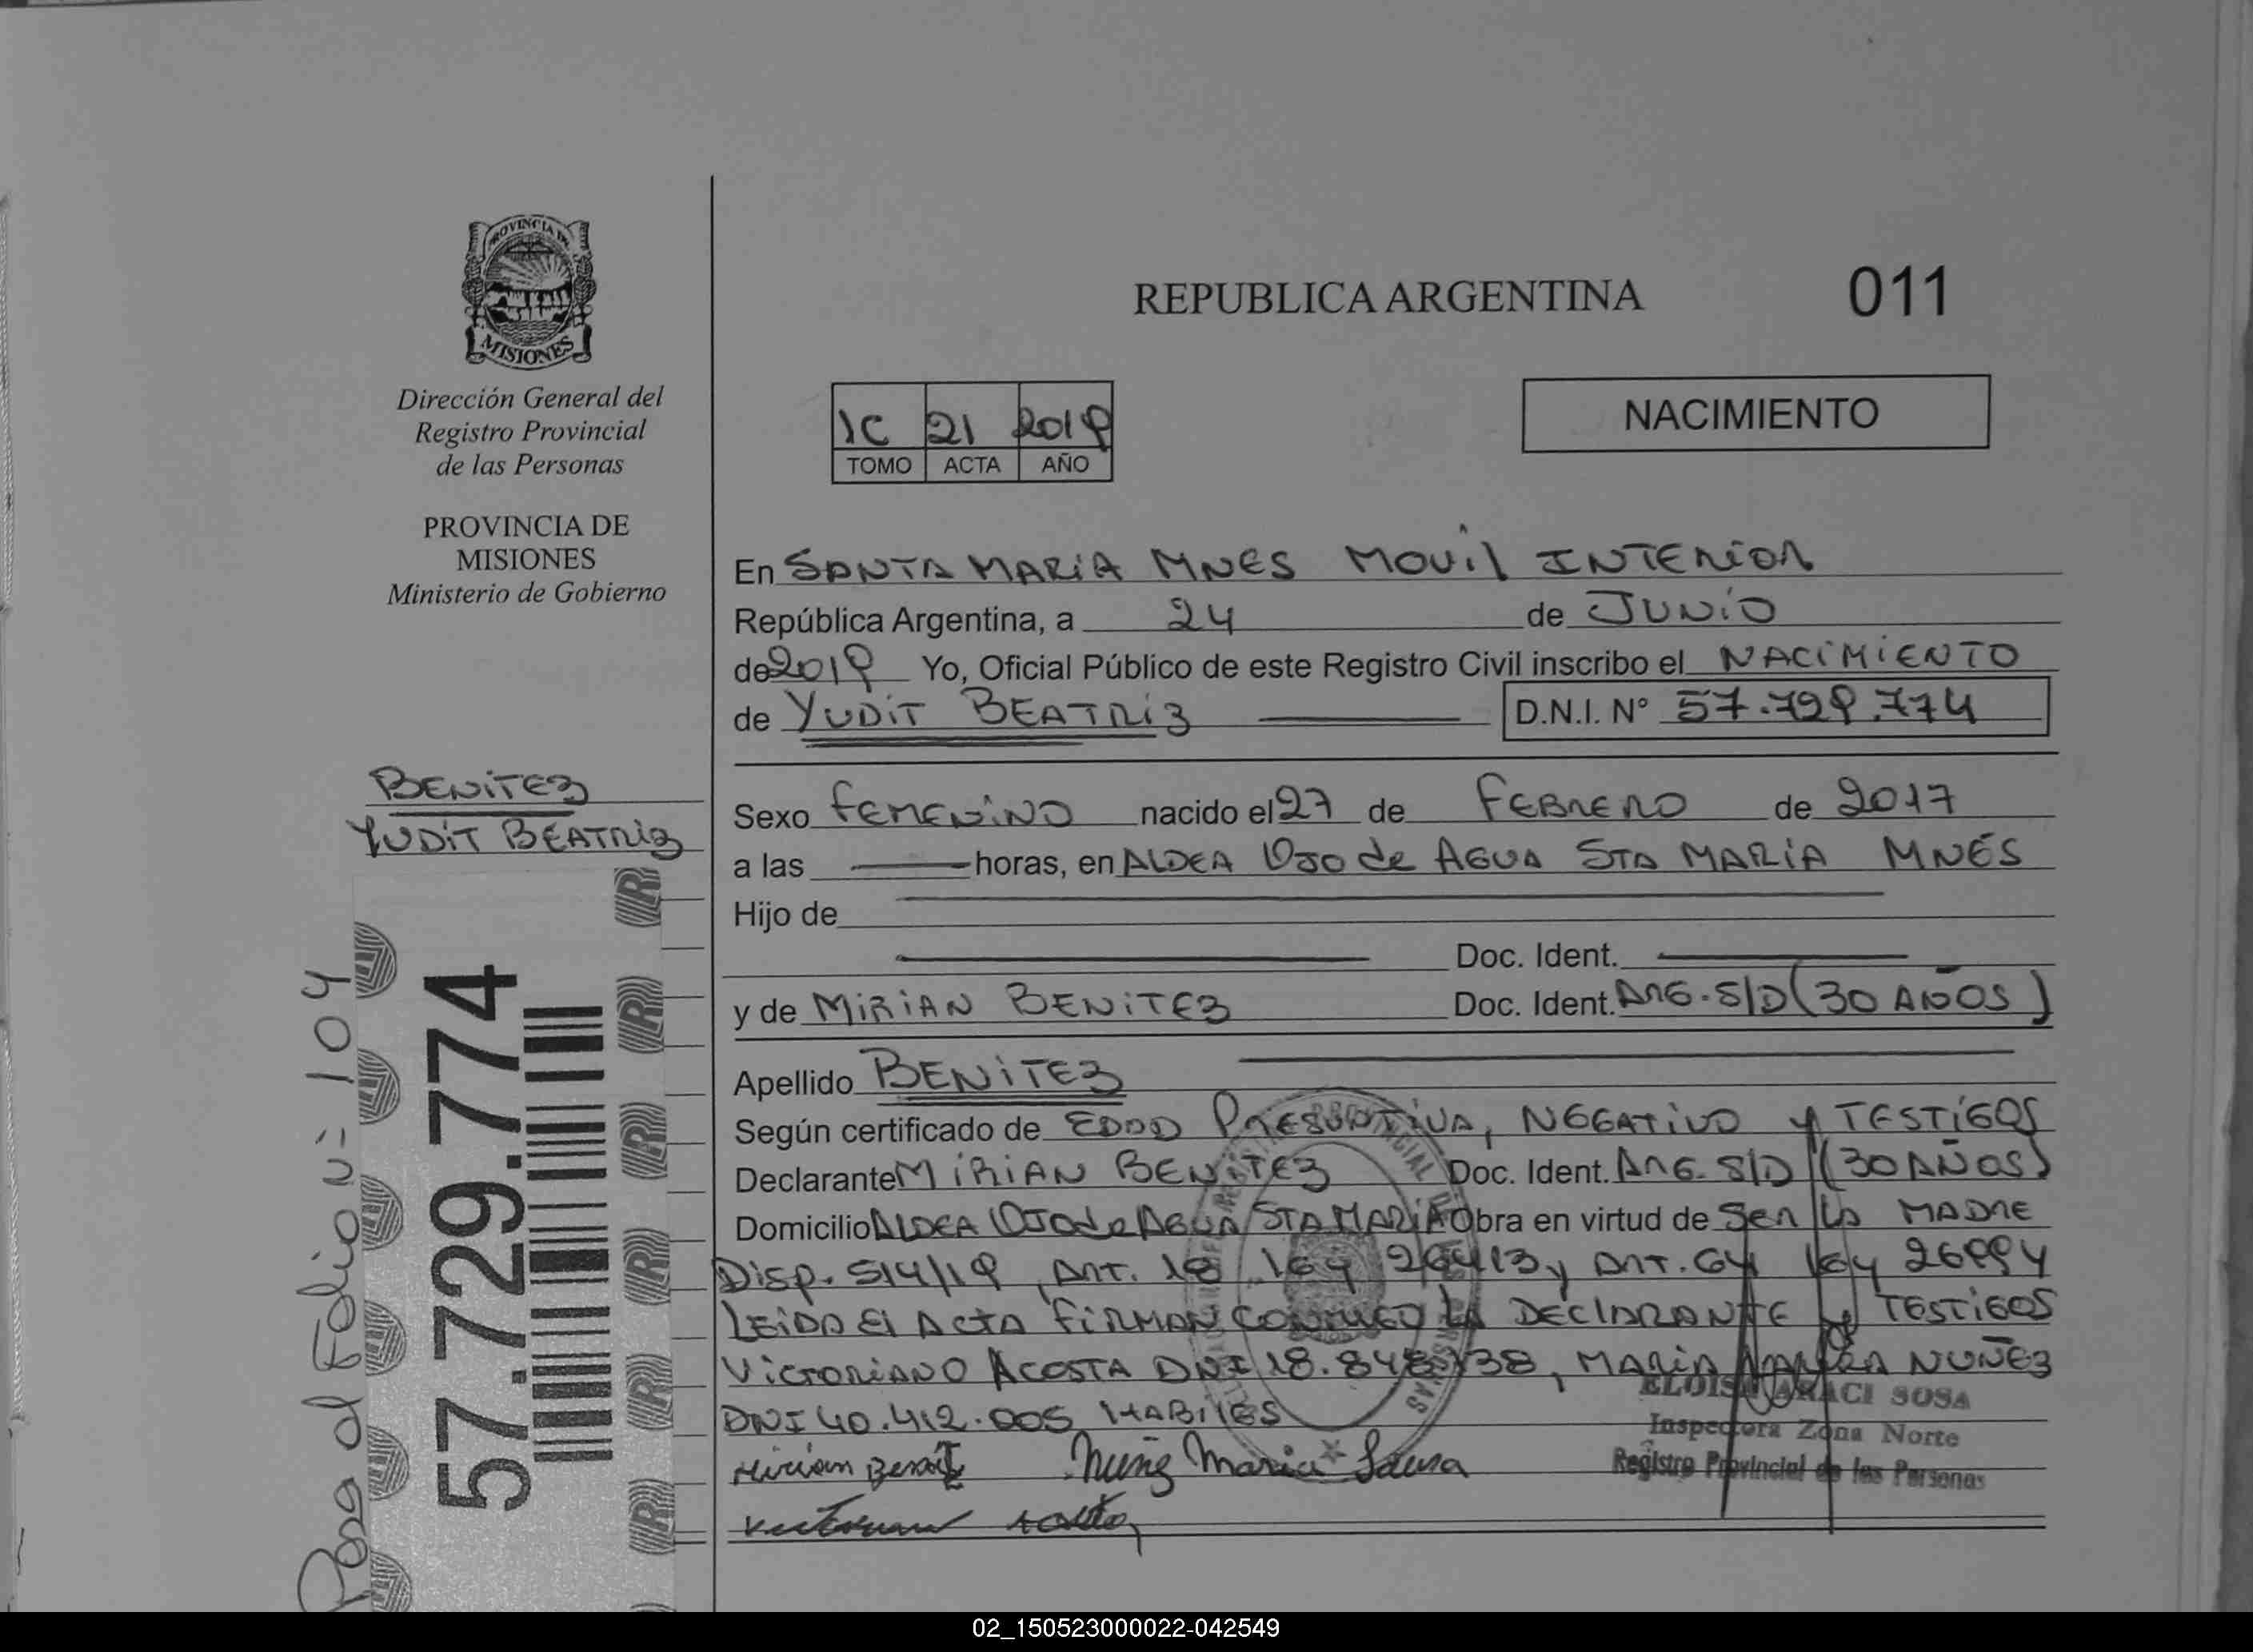 PROVINCIA DE
MISIONES
Dirección General del
Registro Provincial
de las Personas
PROVINCIA DE
MISIONES
Ministerio de Gobierno
BENITEZ
YUDIT BEATRIZ
Pasa al Folio Nº 104
57.729.774
REPUBLICA ARGENTINA
011
1C 21 2019
TOMO ACTA AÑO
NACIMIENTO
En SANTA MARIA MNES MOVIL INTERIOR
República Argentina, a 24 de JUNIO
de 2019 Yo, Oficial Público de este Registro Civil inscribo el NACIMIENTO
de YUDIT BEATRIZ D.N.I. N° 57.729.774
Sexo FEMENINO nacido el 27 de FEBRERO de 2017
a las horas, en ALDEA OJO de AGUA STA MARIA MNES
Hijo de
Doc. Ident.
y de MIRIAN BENITEZ Doc. Ident. ARG. S/D (30 AÑOS)
Apellido BENITEZ
Según certificado de EDAD PRESUNTIVA, NEGATIVO y TESTIGOS
Declarante MIRIAN BENITEZ Doc. Ident. ARG. S/D (30 AÑOS)
Domicilio ALDEA OJO de AGUA STA MARIA Obra en virtud de SER LA MADRE
Disp. 514/19, ART. 18 LEY 26413 y ART. 64 LEY 26994
LEIDA El ACTA FIRMAN CONMIGO LA DECLARANTE y TESTIGOS
VICTORIANO ACOSTA DNI 18.848.738, MARIA NUÑEZ
DNI 40.412.005 HABILES
Mirian Benit
Nuñez Maria
ELOISA ARACI SOSA
Inspectora Zona Norte
Registro Provincial de las Personas
02_150523000022-042549